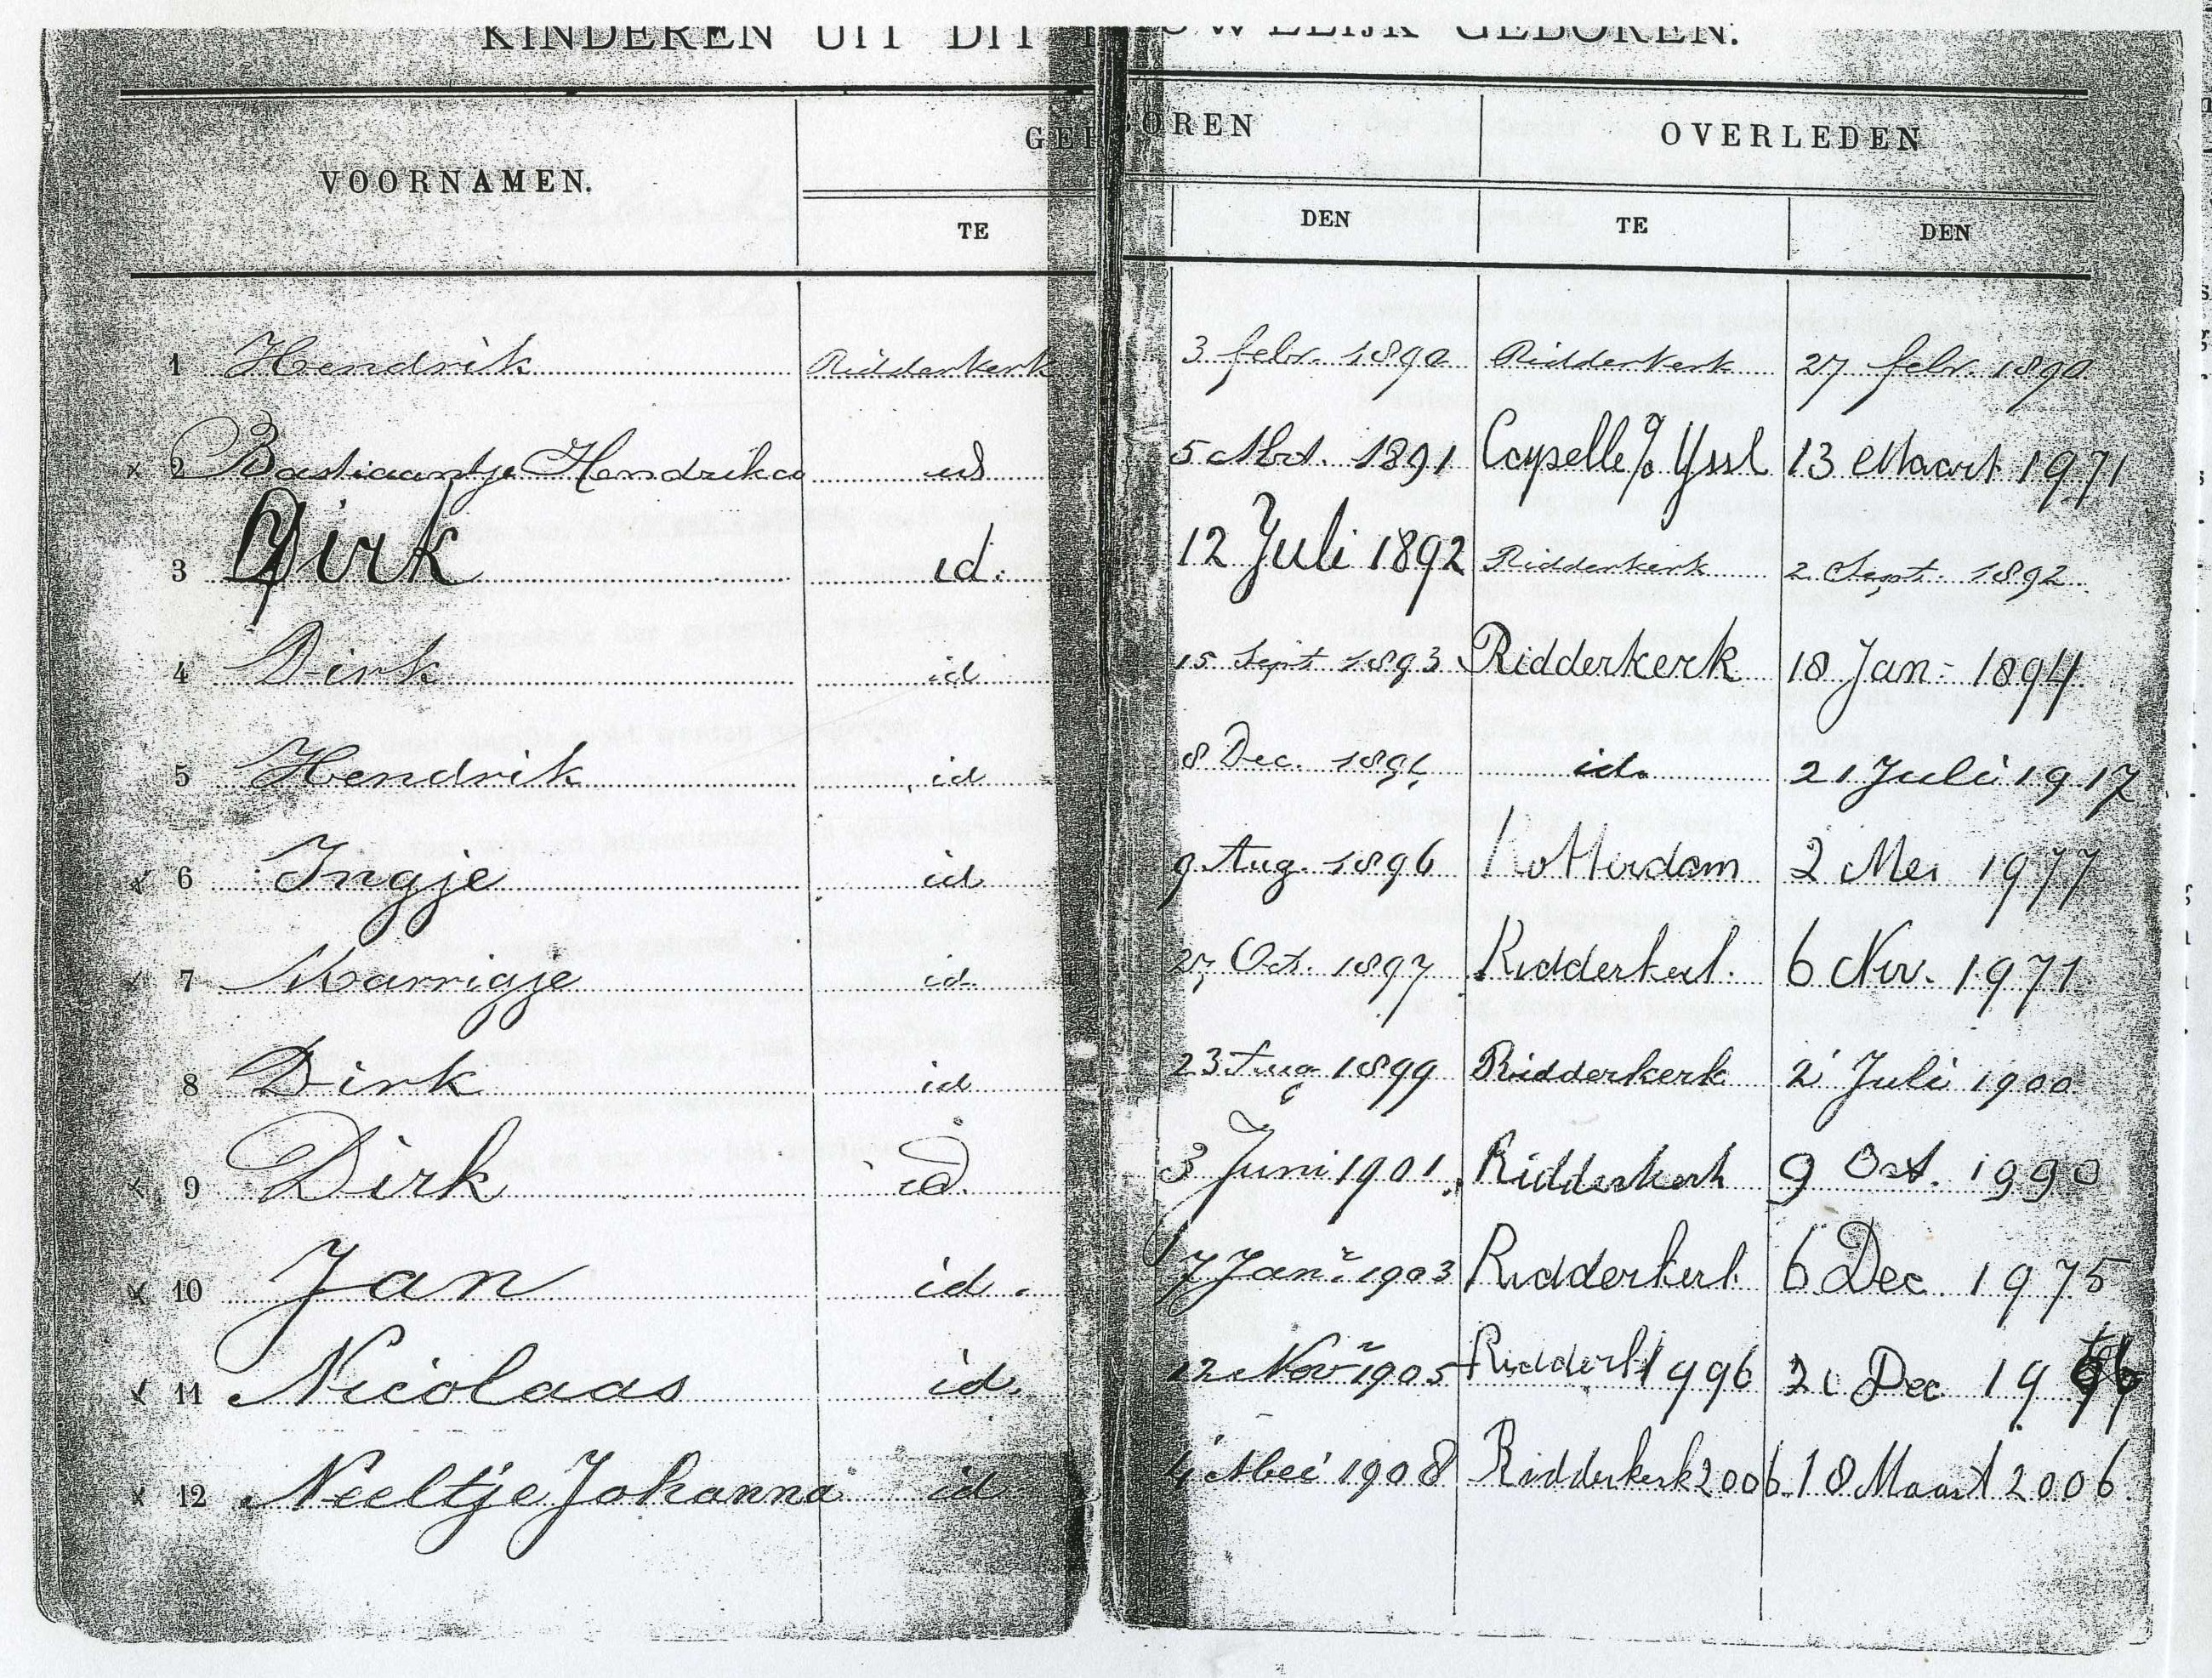 KINDEREN UIT DIT HUWELIJK GEBOREN.
VOORNAMEN. GEBOREN OVERLEDEN
TE DEN TE DEN
1 Hendrik Ridderkerk 3 febr. 1890 Ridderkerk 27 febr. 1890
x 2 Bastiaantje Hendrika id 5 Oct. 1891 Capelle a/d Yssl 13 Maart 1971
3 Dirk id. 12 Juli 1892 Ridderkerk 2 Sept. 1892
4 Dirk id 15 Sept 1893 Ridderkerk 18 Jan - 1894
5 Hendrik id 8 Dec. id. 21 Juli 1917
x 6 Ingje id 9 Aug. 1896 Rotterdam 2 Mei 1977
x 7 Marrigje id. 27 Oct. 1897 Ridderkerk. 6 Nov. 1971
8 Dirk id 23 Aug 1899 Ridderkerk 2 Juli 1900
x 9 Dirk id. 3 Juni 1901. Ridderkerk 9 Oct. 1990
x 10 Jan id. 7 Janr. 1903 Ridderkerk. 6 Dec. 1975
x 11 Nicolaas id. 12 Novr 1905 Ridderk 1996 21 Dec 19
x 12 Neeltje Johanna id 4 Mei 1908 Ridderkerk 2006. 18 Maart 2006.